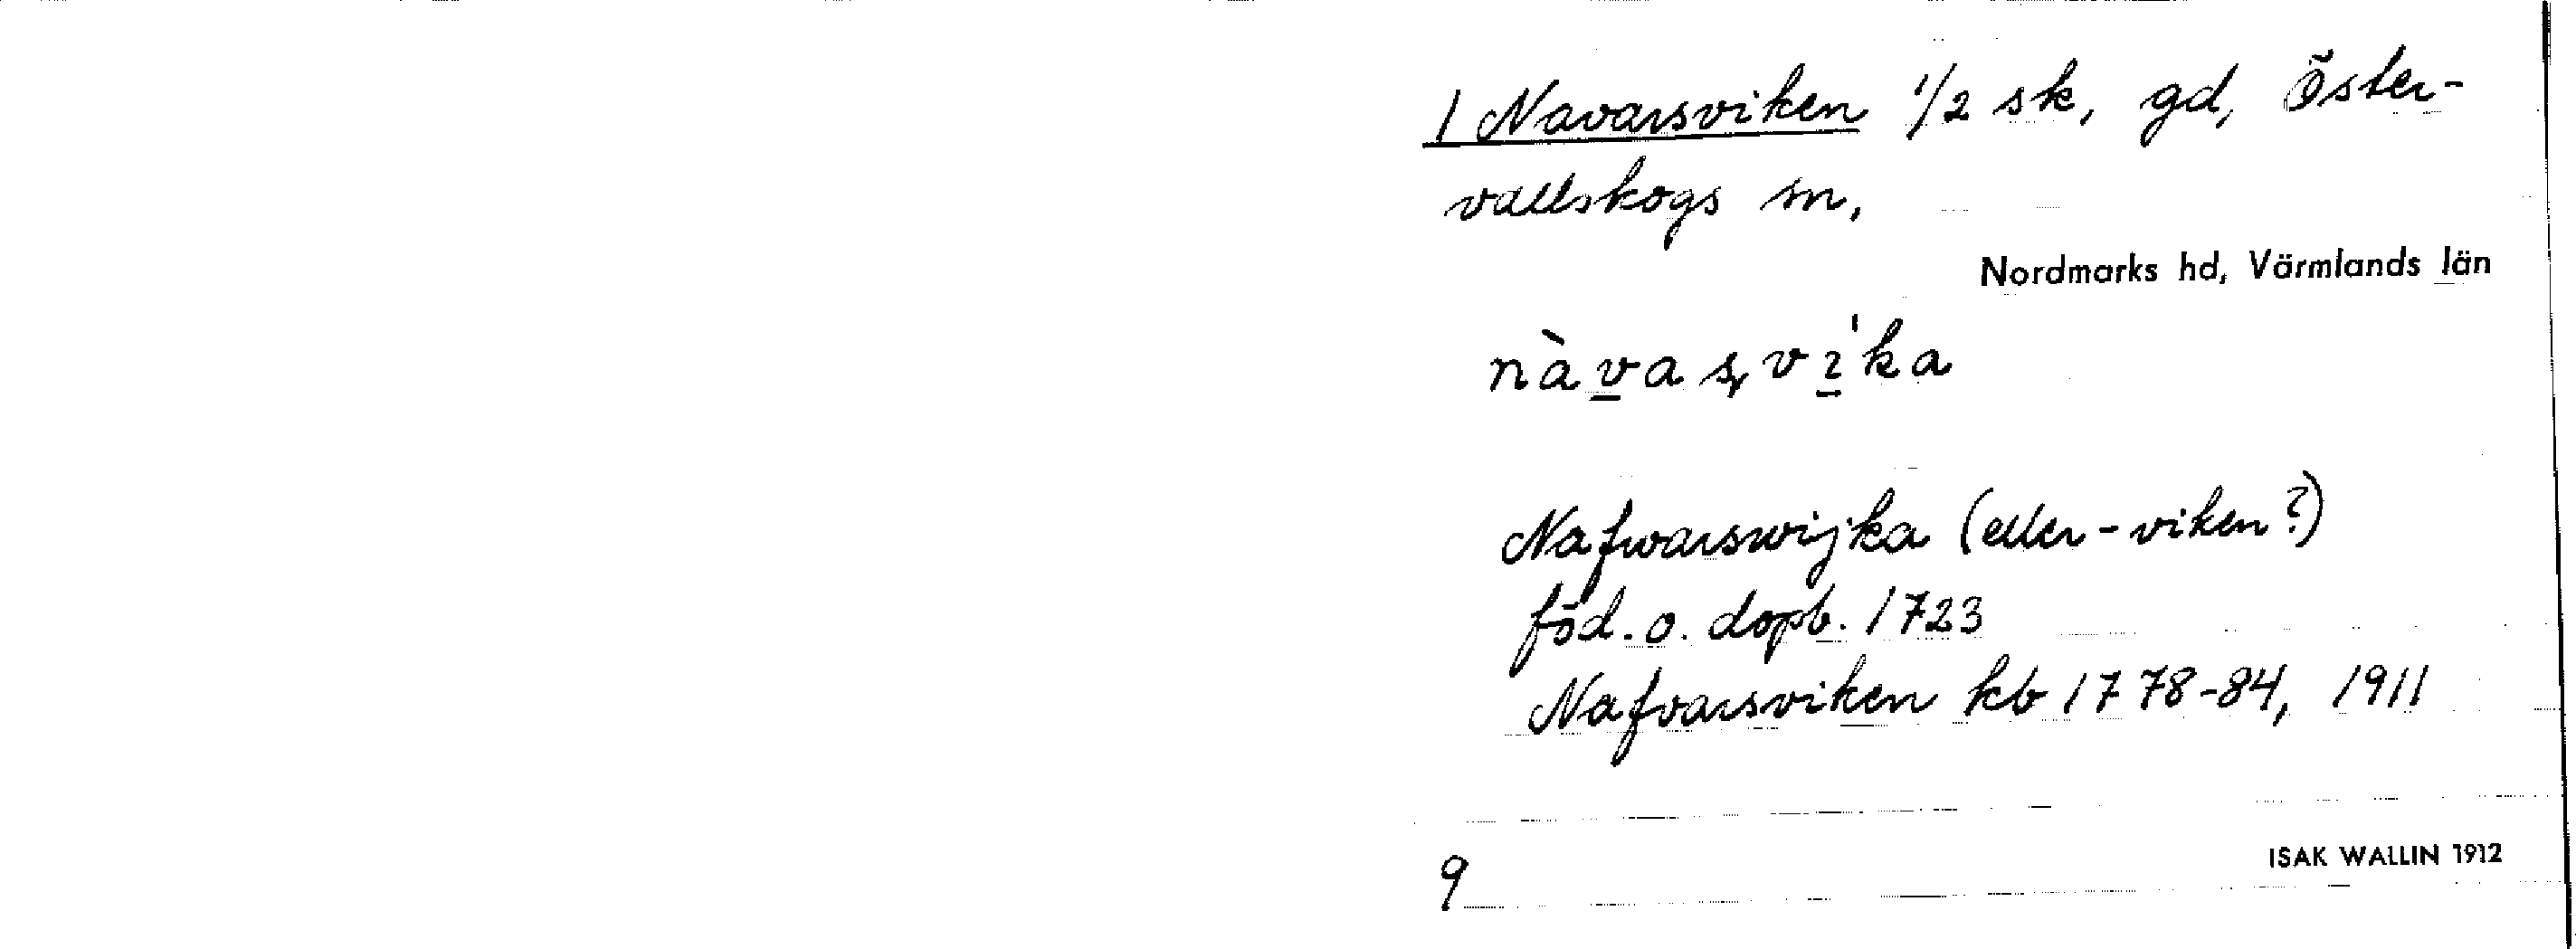 1 Navarsviken 1/2 sk, gd, Öster-
vallskogs sn,
Nordmarks hd, Värmlands län
nàvaʂvi̱ˈka
Nafwarswijka (eller -viken?)
föd. o. dopb. 1723
Nafvarsviken kb 1778-84, 1911
9
ISAK WALLIN 1912